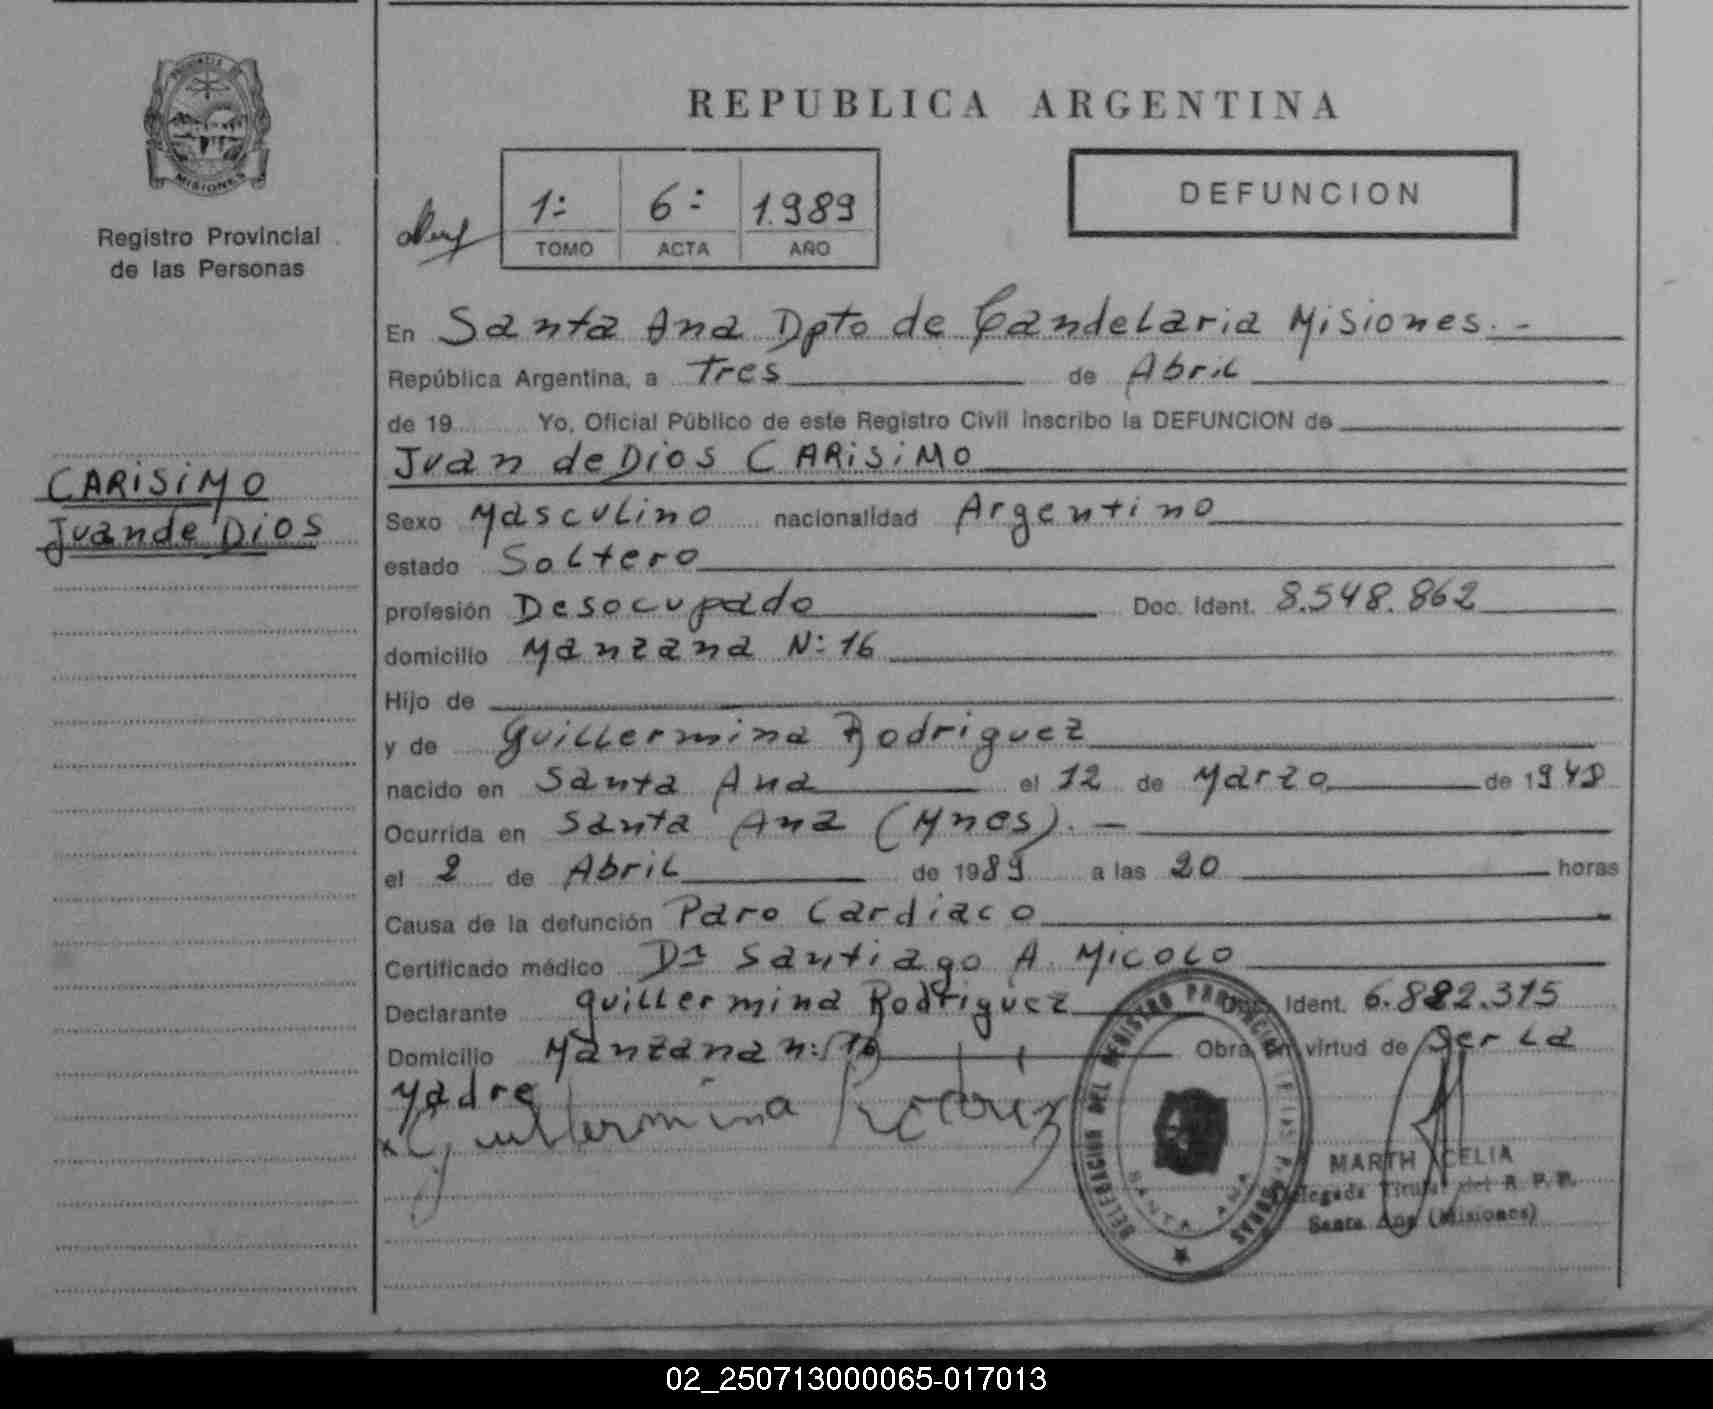 PROVINCIA DE
MISIONES
Registro Provincial
de las Personas
REPUBLICA ARGENTINA
DEFUNCION
1:
6:
1.989
TOMO
ACTA
AÑO
En Santa Ana Dpto de Candelaria Misiones. -
República Argentina, a tres de Abril
de 19 Yo, Oficial Público de este Registro Civil inscribo la DEFUNCION de
Juan de Dios CARISIMO
CARISIMO
Juan de Dios
Sexo Masculino nacionalidad Argentino
estado Soltero
profesión Desocupado Doc. Ident. 8.548.862
domicilio Manzana N: 16
Hijo de
y de Guillermina Rodriguez
nacido en Santa Ana el 12 de Marzo de 1948
Ocurrida en Santa Ana (Mnes). -
el 2 de Abril de 1989 a las 20 horas
Causa de la defunción Paro Cardiaco
Certificado médico Dr Santiago A. Micolo
Declarante Guillermina Rodriguez Ident. 6.882.315
Domicilio Manzana n: 16 Obra en virtud de Ser La
Madre
x Guillermina
DELEGACION DEL REGISTRO PROVINCIAL DE LAS PERSONAS
SANTA ANA
MARTH CELIA
Delegada Titular del R. P. P.
Santa Ana (Misiones)
02_250713000065-017013